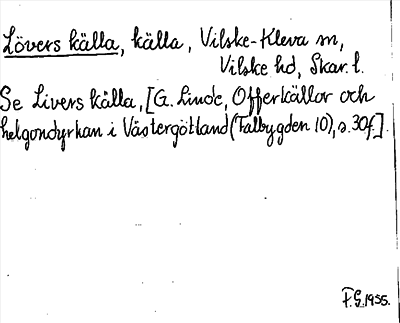 Lövers källa, källa, Vilske-Kleva sn,
Vilske hd, Skar. l.
Se Livers källa, [G. Linde, Offerkällor och
helgondyrkan i Västergötland (Falbygden 10), s. 30f.].
F.G. 1955.